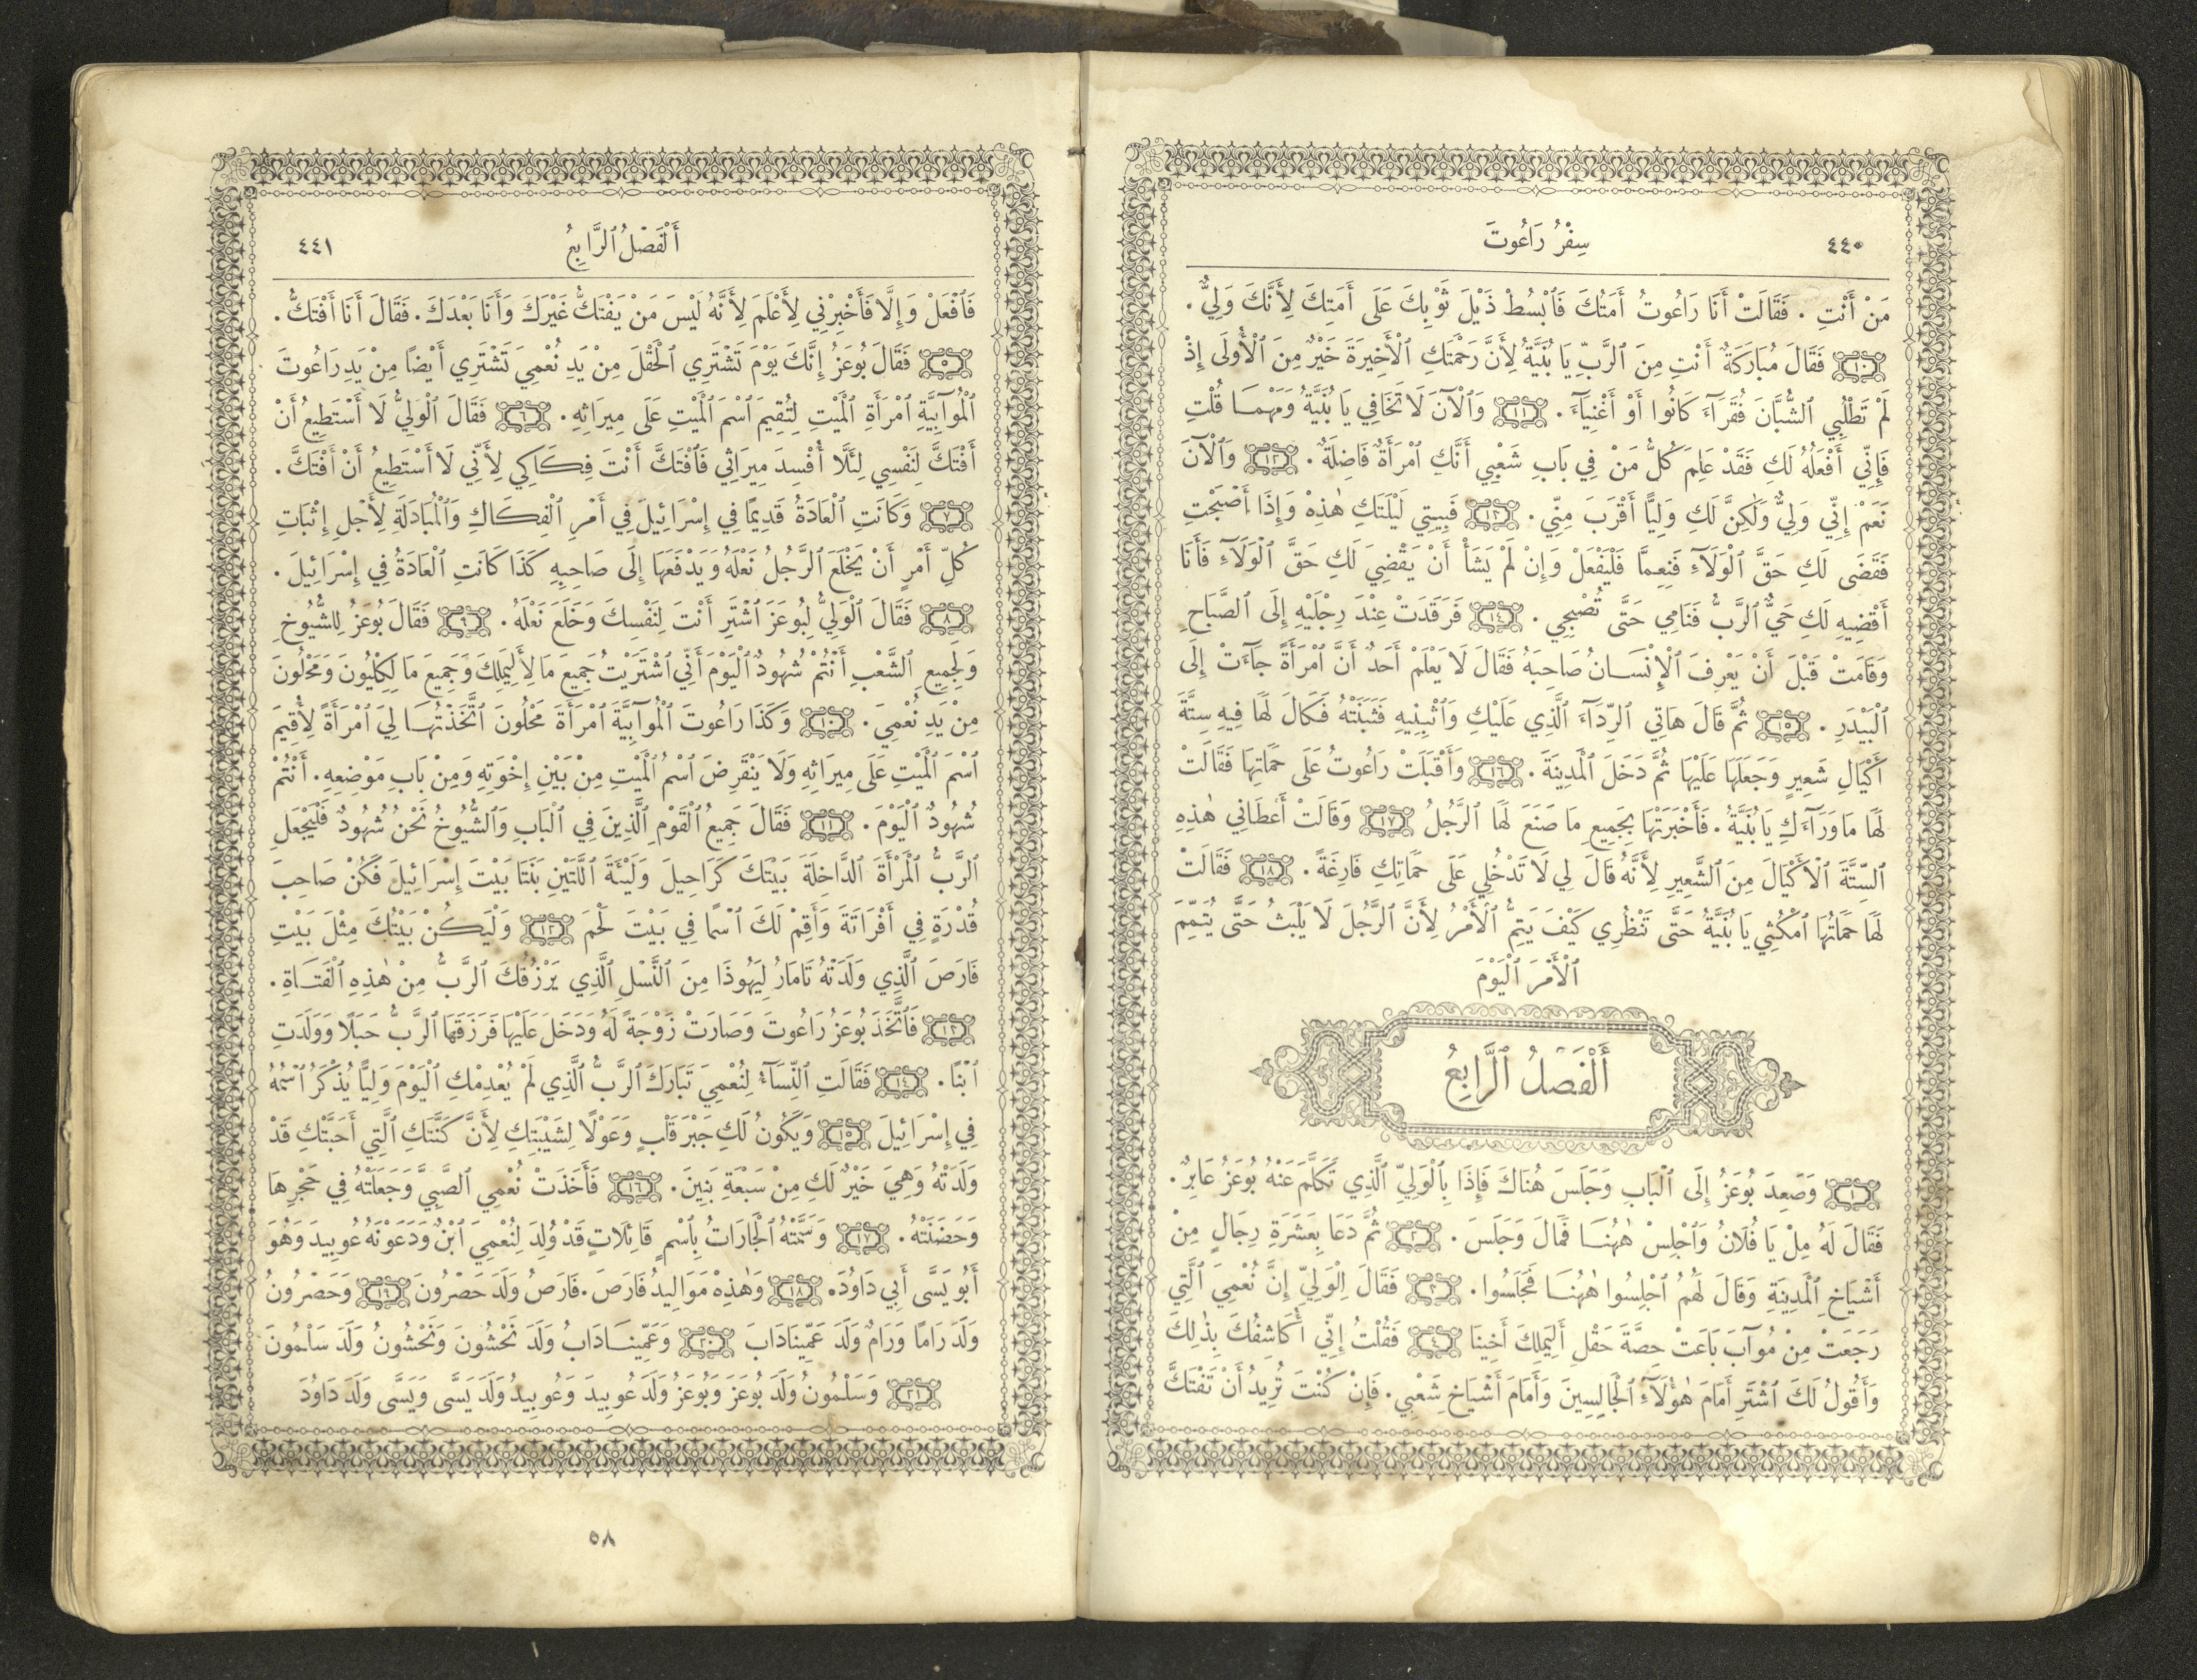 ٤٤٠
سِفْرُ رَاعُوتَ
مَنْ أَنْتِ . فَقَالَتْ أَنَا رَاعُوتُ أَمَتُكَ فَٱبْسُطْ ذَيْلَ ثَوْبِكَ عَلَى أَمَتِكَ لِأَنَّكَ وَلِيٌّ .
١٠ فَقَالَ مُبَارَكَةٌ أَنْتِ مِنَ ٱلرَّبِّ يَا بُنَيَّةُ لِأَنَّ رَحْمَتَكِ ٱلْأَخِيرَةَ خَيْرٌ مِنَ ٱلْأُولَى إِذْ
لَمْ تَطْلُبِي ٱلشُّبَّانَ فُقَرَآءَ كَانُوا أَوْ أَغْنِيَآءَ . ١١ وَٱلْآنَ لَا تَخَافِي يَا بُنَيَّةُ وَمَهْمَا قُلْتِ
فَإِنِّي أَفْعَلُهُ لَكِ فَقَدْ عَلِمَ كُلُّ مَنْ فِي بَابِ شَعْبِي أَنَّكِ ٱمْرَأَةٌ فَاضِلَةٌ . ١٢ وَٱلْآنَ
نَعَمْ إِنِّي وَلِيٌّ وَلٰكِنَّ لَكِ وَلِيًّا أَقْرَبَ مِنِّي . ١٣ فَبِيتِي لَيْلَتَكِ هٰذِهْ وَإِذَا أَصْبَحْتِ
فَقَضَى لَكِ حَقَّ ٱلْوَلَآءِ فَنِعِمَّا فَلْيَفْعَلْ وَإِنْ لَمْ يَشَأْ أَنْ يَقْضِيَ لَكِ حَقَّ ٱلْوَلَآءِ فَأَنَا
أَقْضِيهِ لَكِ حَيٌّ ٱلرَّبُّ فَنَامِي حَتَّى تُصْبِحِي . ١٤ فَرَقَدَتْ عِنْدَ رِجْلَيْهِ إِلَى ٱلصَّبَاحِ
وَقَامَتْ قَبْلَ أَنْ يَعْرِفَ ٱلْإِنْسَانُ صَاحِبَهُ فَقَالَ لَا يَعْلَمْ أَحَدٌ أَنَّ ٱمْرَأَةً جَآءَتْ إِلَى
ٱلْبَيْدَرِ . ١٥ ثُمَّ قَالَ هَاتِي ٱلرِّدَآءَ ٱلَّذِي عَلَيْكِ وَٱثْبِنِيهِ فَثَبَنَتْهُ فَكَالَ لَهَا فِيهِ سِتَّةَ
أَكْيَالِ شَعِيرٍ وَجَعَلَهَا عَلَيْهَا ثُمَّ دَخَلَ ٱلْمَدِينَةَ . ١٦ وَأَقْبَلَتْ رَاعُوتُ عَلَى حَمَاتِهَا فَقَالَتْ
لَهَا مَا وَرَآءَكِ يَا بُنَيَّةُ . فَأَخْبَرَتْهَا بِجَمِيعِ مَا صَنَعَ لَهَا ٱلرَّجُلُ ١٧ وَقَالَتْ أَعْطَانِي هٰذِهِ
ٱلسِّتَّةَ ٱلْأَكْيَالَ مِنَ ٱلشَّعِيرِ لِأَنَّهُ قَالَ لِي لَا تَدْخُلِي عَلَى حَمَاتِكِ فَارِغَةً . ١٨ فَقَالَتْ
لَهَا حَمَاتُهَا ٱمْكُثِي يَا بُنَيَّةُ حَتَّى تَنْظُرِي كَيْفَ يَتِمُّ ٱلْأَمْرُ لِأَنَّ ٱلرَّجُلَ لَا يَلْبَثُ حَتَّى يُتَمِّمَ
ٱلْأَمْرَ ٱلْيَوْمَ
أَلْفَصْلُ ٱلرَّابِعُ
١ وَصَعِدَ بُوعَزُ إِلَى ٱلْبَابِ وَجَلَسَ هُنَاكَ فَإِذَا بِٱلْوَلِيِّ ٱلَّذِي تَكَلَّمَ عَنْهُ بُوعَزُ عَابِرٌ .
فَقَالَ لَهُ مِلْ يَا فُلَانُ وَٱجْلِسْ هٰهُنَا فَمَالَ وَجَلَسَ . ٢ ثُمَّ دَعَا بِعَشَرَةِ رِجَالٍ مِنْ
أَشْيَاخِ ٱلْمَدِينَةِ وَقَالَ لَهُمُ ٱجْلِسُوا هٰهُنَا فَجَلَسُوا . ٣ فَقَالَ لِلْوَلِيِّ إِنَّ نُعْمِيَ ٱلَّتِي
رَجَعَتْ مِنْ مُوآبَ بَاعَتْ حِصَّةَ حَقْلِ أَلِيمَلِكَ أَخِينَا ٤ فَقُلْتُ إِنِّي أُكَاشِفُكَ بِذٰلِكَ
وَأَقُولُ لَكَ ٱشْتَرِ أَمَامَ هٰؤُلَآءِ ٱلْجَالِسِينَ وَأَمَامَ أَشْيَاخِ شَعْبِي . فَإِنْ كُنْتَ تُرِيدُ أَنْ تَفْتَكَّ
أَلْفَصْلُ ٱلرَّابِعُ
٤٤١
فَٱفْعَلْ وَإِلَّا فَأَخْبِرْنِي لِأَعْلَمَ لِأَنَّهُ لَيْسَ مَنْ يَفْتَكُّ غَيْرَكَ وَأَنَا بَعْدَكَ . فَقَالَ أَنَا أَفْتَكُّ .
٥ فَقَالَ بُوعَزُ إِنَّكَ يَوْمَ تَشْتَرِي ٱلْحَقْلَ مِنْ يَدِ نُعْمِيَ تَشْتَرِي أَيْضًا مِنْ يَدِ رَاعُوتَ
ٱلْمُوآبِيَّةِ ٱمْرَأَةِ ٱلْمَيْتِ لِتُقِيمَ ٱسْمَ ٱلْمَيْتِ عَلَى مِيرَاثِهِ . ٦ فَقَالَ ٱلْوَلِيُّ لَا أَسْتَطِيعُ أَنْ
أَفْتَكَّ لِنَفْسِي لِئَلَّا أُفْسِدَ مِيرَاثِي فَٱفْتَكَّ أَنْتَ فِكَاكِي لِأَنِّي لَا أَسْتَطِيعُ أَنْ أَفْتَكَّ .
٧ وَكَانَتِ ٱلْعَادَةُ قَدِيمًا فِي إِسْرَائِيلَ فِي أَمْرِ ٱلْفِكَاكِ وَٱلْمُبَادَلَةِ لِأَجْلِ إِثْبَاتِ
كُلِّ أَمْرٍ أَنْ يَخْلَعَ ٱلرَّجُلُ نَعْلَهُ وَيَدْفَعَهَا إِلَى صَاحِبِهِ كَذَا كَانَتِ ٱلْعَادَةُ فِي إِسْرَائِيلَ .
٨ فَقَالَ ٱلْوَلِيُّ لِبُوعَزَ ٱشْتَرِ أَنْتَ لِنَفْسِكَ وَخَلَعَ نَعْلَهُ . ٩ فَقَالَ بُوعَزُ لِلشُّيُوخِ
وَلِجَمِيعِ ٱلشَّعْبِ أَنْتُمْ شُهُودٌ ٱلْيَوْمَ أَنِّي ٱشْتَرَيْتُ جَمِيعَ مَا لِأَلِيمَلِكَ وَجَمِيعَ مَا لِكِلْيُونَ وَمَحْلُونَ
مِنْ يَدِ نُعْمِيَ . ١٠ وَكَذَا رَاعُوتَ ٱلْمُوآبِيَّةَ ٱمْرَأَةَ مَحْلُونَ ٱتَّخَذْتُهَا لِيَ ٱمْرَأَةً لِأُقِيمَ
ٱسْمَ ٱلْمَيْتِ عَلَى مِيرَاثِهِ وَلَا يَنْقَرِضَ ٱسْمُ ٱلْمَيْتِ مِنْ بَيْنِ إِخْوَتِهِ وَمِنْ بَابِ مَوْضِعِهِ . أَنْتُمْ
شُهُودٌ ٱلْيَوْمَ . ١١ فَقَالَ جَمِيعُ ٱلْقَوْمِ ٱلَّذِينَ فِي ٱلْبَابِ وَٱلشُّيُوخُ نَحْنُ شُهُودٌ فَلْيَجْعَلِ
ٱلرَّبُّ ٱلْمَرْأَةَ ٱلدَّاخِلَةَ بَيْتَكَ كَرَاحِيلَ وَلَيْئَةَ ٱللَّتَيْنِ بَنَتَا بَيْتَ إِسْرَائِيلَ فَكُنْ صَاحِبَ
قُدْرَةٍ فِي أَفْرَاتَةَ وَأَقِمْ لَكَ ٱسْمًا فِي بَيْتَ لَحْمَ ١٢ وَلْيَكُنْ بَيْتُكَ مِثْلَ بَيْتِ
فَارَصَ ٱلَّذِي وَلَدَتْهُ تَامَارُ لِيَهُوذَا مِنَ ٱلنَّسْلِ ٱلَّذِي يَرْزُقُكَ ٱلرَّبُّ مِنْ هٰذِهِ ٱلْفَتَاةِ .
١٣ فَٱتَّخَذَ بُوعَزُ رَاعُوتَ وَصَارَتْ زَوْجَةً لَهُ وَدَخَلَ عَلَيْهَا فَرَزَقَهَا ٱلرَّبُّ حَبَلًا وَوَلَدَتِ
ٱبْنًا . ١٤ فَقَالَتِ ٱلنِّسَآءُ لِنُعْمِيَ تَبَارَكَ ٱلرَّبُّ ٱلَّذِي لَمْ يُعْدِمْكِ ٱلْيَوْمَ وَلِيًّا يُذْكَرُ ٱسْمُهُ
فِي إِسْرَائِيلَ ١٥ وَيَكُونُ لَكِ جَبْرَ قَلْبٍ وَعَوْلًا لِشَيْبَتِكِ لِأَنَّ كَنَّتَكِ ٱلَّتِي أَحَبَّتْكِ قَدْ
وَلَدَتْهُ وَهِيَ خَيْرٌ لَكِ مِنْ سَبْعَةِ بَنِينَ . ١٦ فَأَخَذَتْ نُعْمِي ٱلصَّبِيَّ وَجَعَلَتْهُ فِي حَجْرِهَا
وَحَضَنَتْهُ . ١٧ وَسَمَّتْهُ ٱلْجَارَاتُ بِٱسْمٍ قَائِلَاتٍ قَدْ وُلِدَ لِنُعْمِيَ ٱبْنٌ وَدَعَوْنَهُ عُوبِيدَ وَهُوَ
أَبُو يَسَّى أَبِي دَاوُدَ . ١٨ وَهٰذِهْ مَوَالِيدُ فَارَصَ . فَارَصُ وَلَدَ حَصْرُونَ ١٩ وَحَصْرُونُ
وَلَدَ رَامًا وَرَامٌ وَلَدَ عَمِّينَادَابَ ٢٠ وَعَمِّينَادَابُ وَلَدَ نَحْشُونَ وَنَحْشُونُ وَلَدَ سَلْمُونَ
٢١ وَسَلْمُونُ وَلَدَ بُوعَزَ وَبُوعَزُ وَلَدَ عُوبِيدَ وَعُوبِيدُ وَلَدَ يَسَّى وَيَسَّى وَلَدَ دَاوُدَ
٥٨